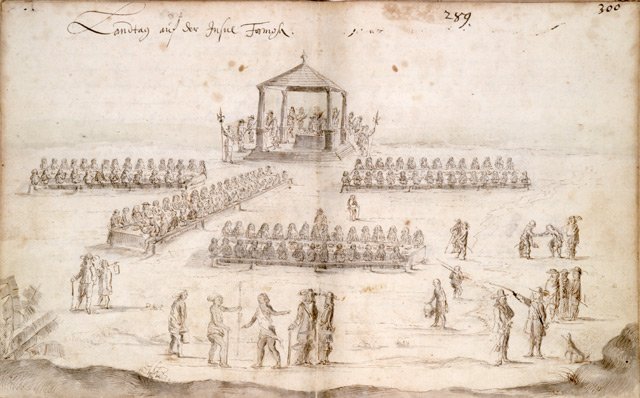 Landtag auf der Insul Formosa.
289.
300